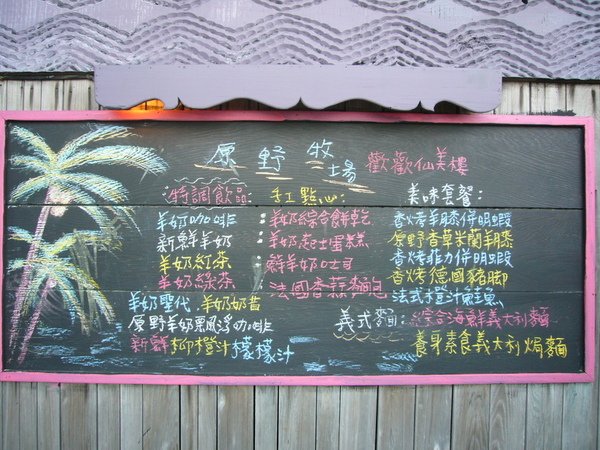 原野牧場 歡歡仙美樓
特調飲品: 手工點心: 美味套餐:
羊奶咖啡 羊奶綜合餅乾 香烤羊膝併明蝦
新鮮羊奶 羊奶起士蛋糕 原野香草米蘭羊膝
羊奶紅茶 鮮羊奶吐司 香烤菲力併明蝦
羊奶綠茶 法國香蒜麵包 香烤德國豬腳
法式橙汁
羊奶聖代 羊奶奶昔
原野羊奶漂浮咖啡 義式麵: 綜合海鮮義大利麵
新鮮柳橙汁 檸檬汁 養身素食義大利焗麵